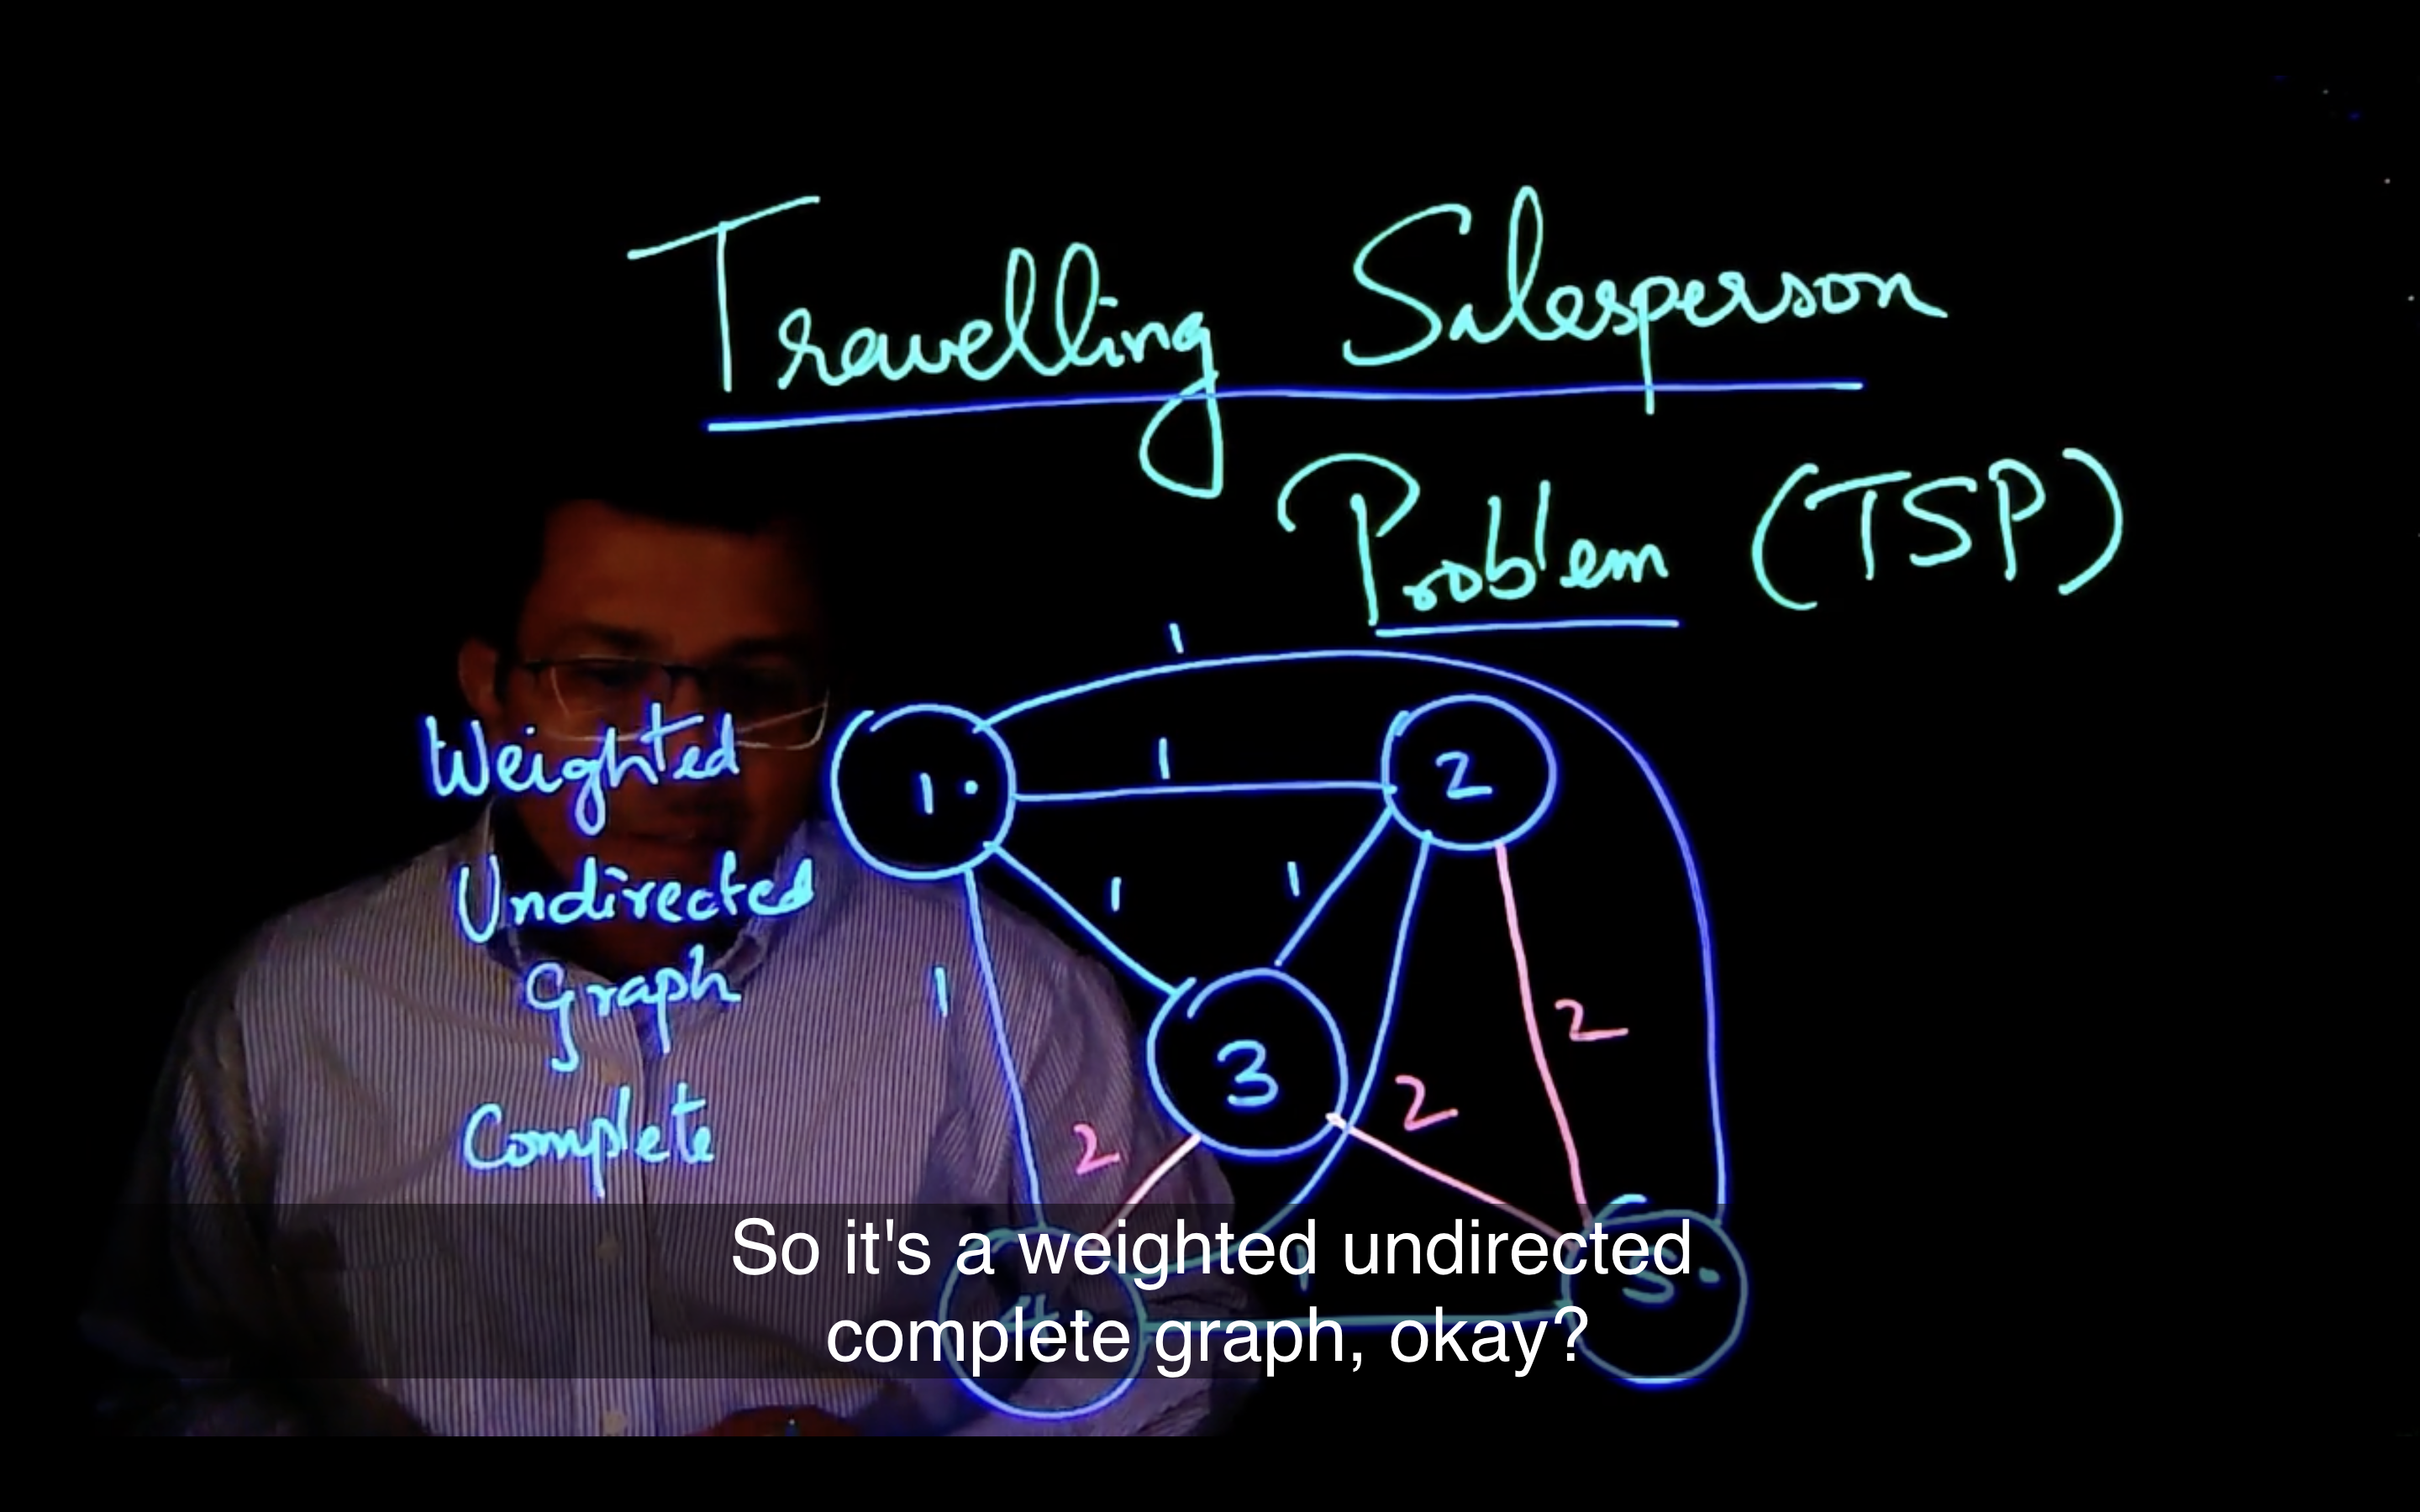 Travelling Salesperson
Problem (TSP)
1
Weighted
1.
1
2
Undirected
1
1
Graph
1
3
2
Complete
2
2
4.
1
5.
So it's a weighted undirected
complete graph, okay?